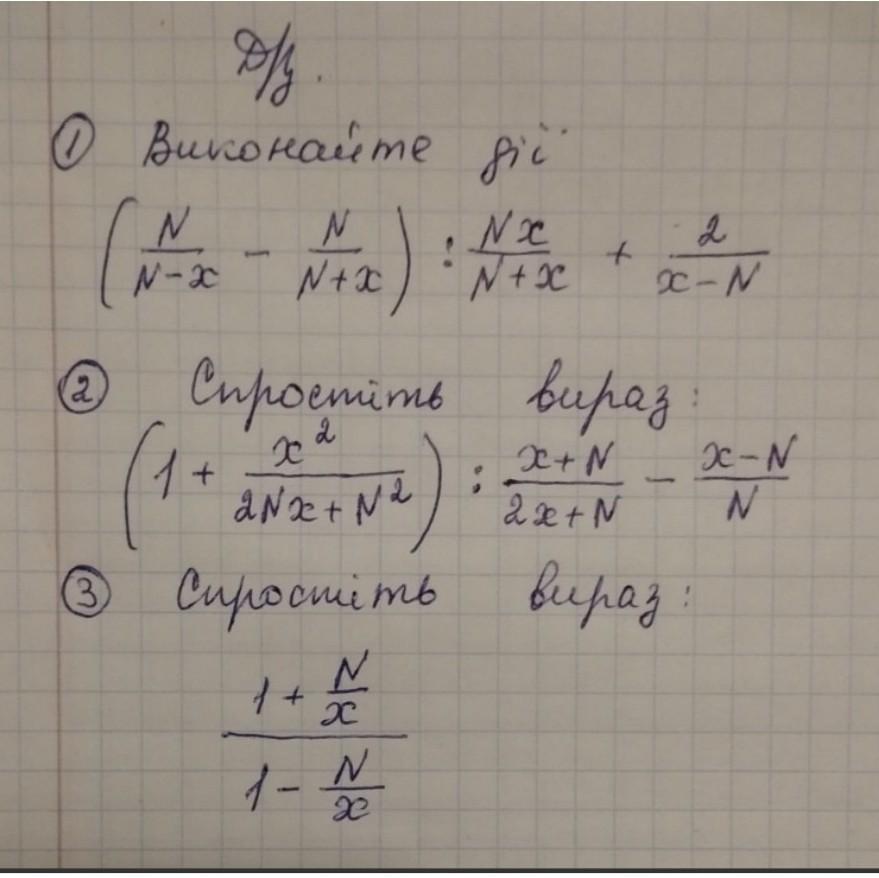 Д/з.
① Виконайте дії
(N/(N-x) - N/(N+x)) : Nx/(N+x) + 2/(x-N)
② Спростіть вираз:
(1 + x²/(2Nx+N²)) : (x+N)/(2x+N) - (x-N)/N
③ Спростіть вираз:
(1 + N/x)/(1 - N/x)